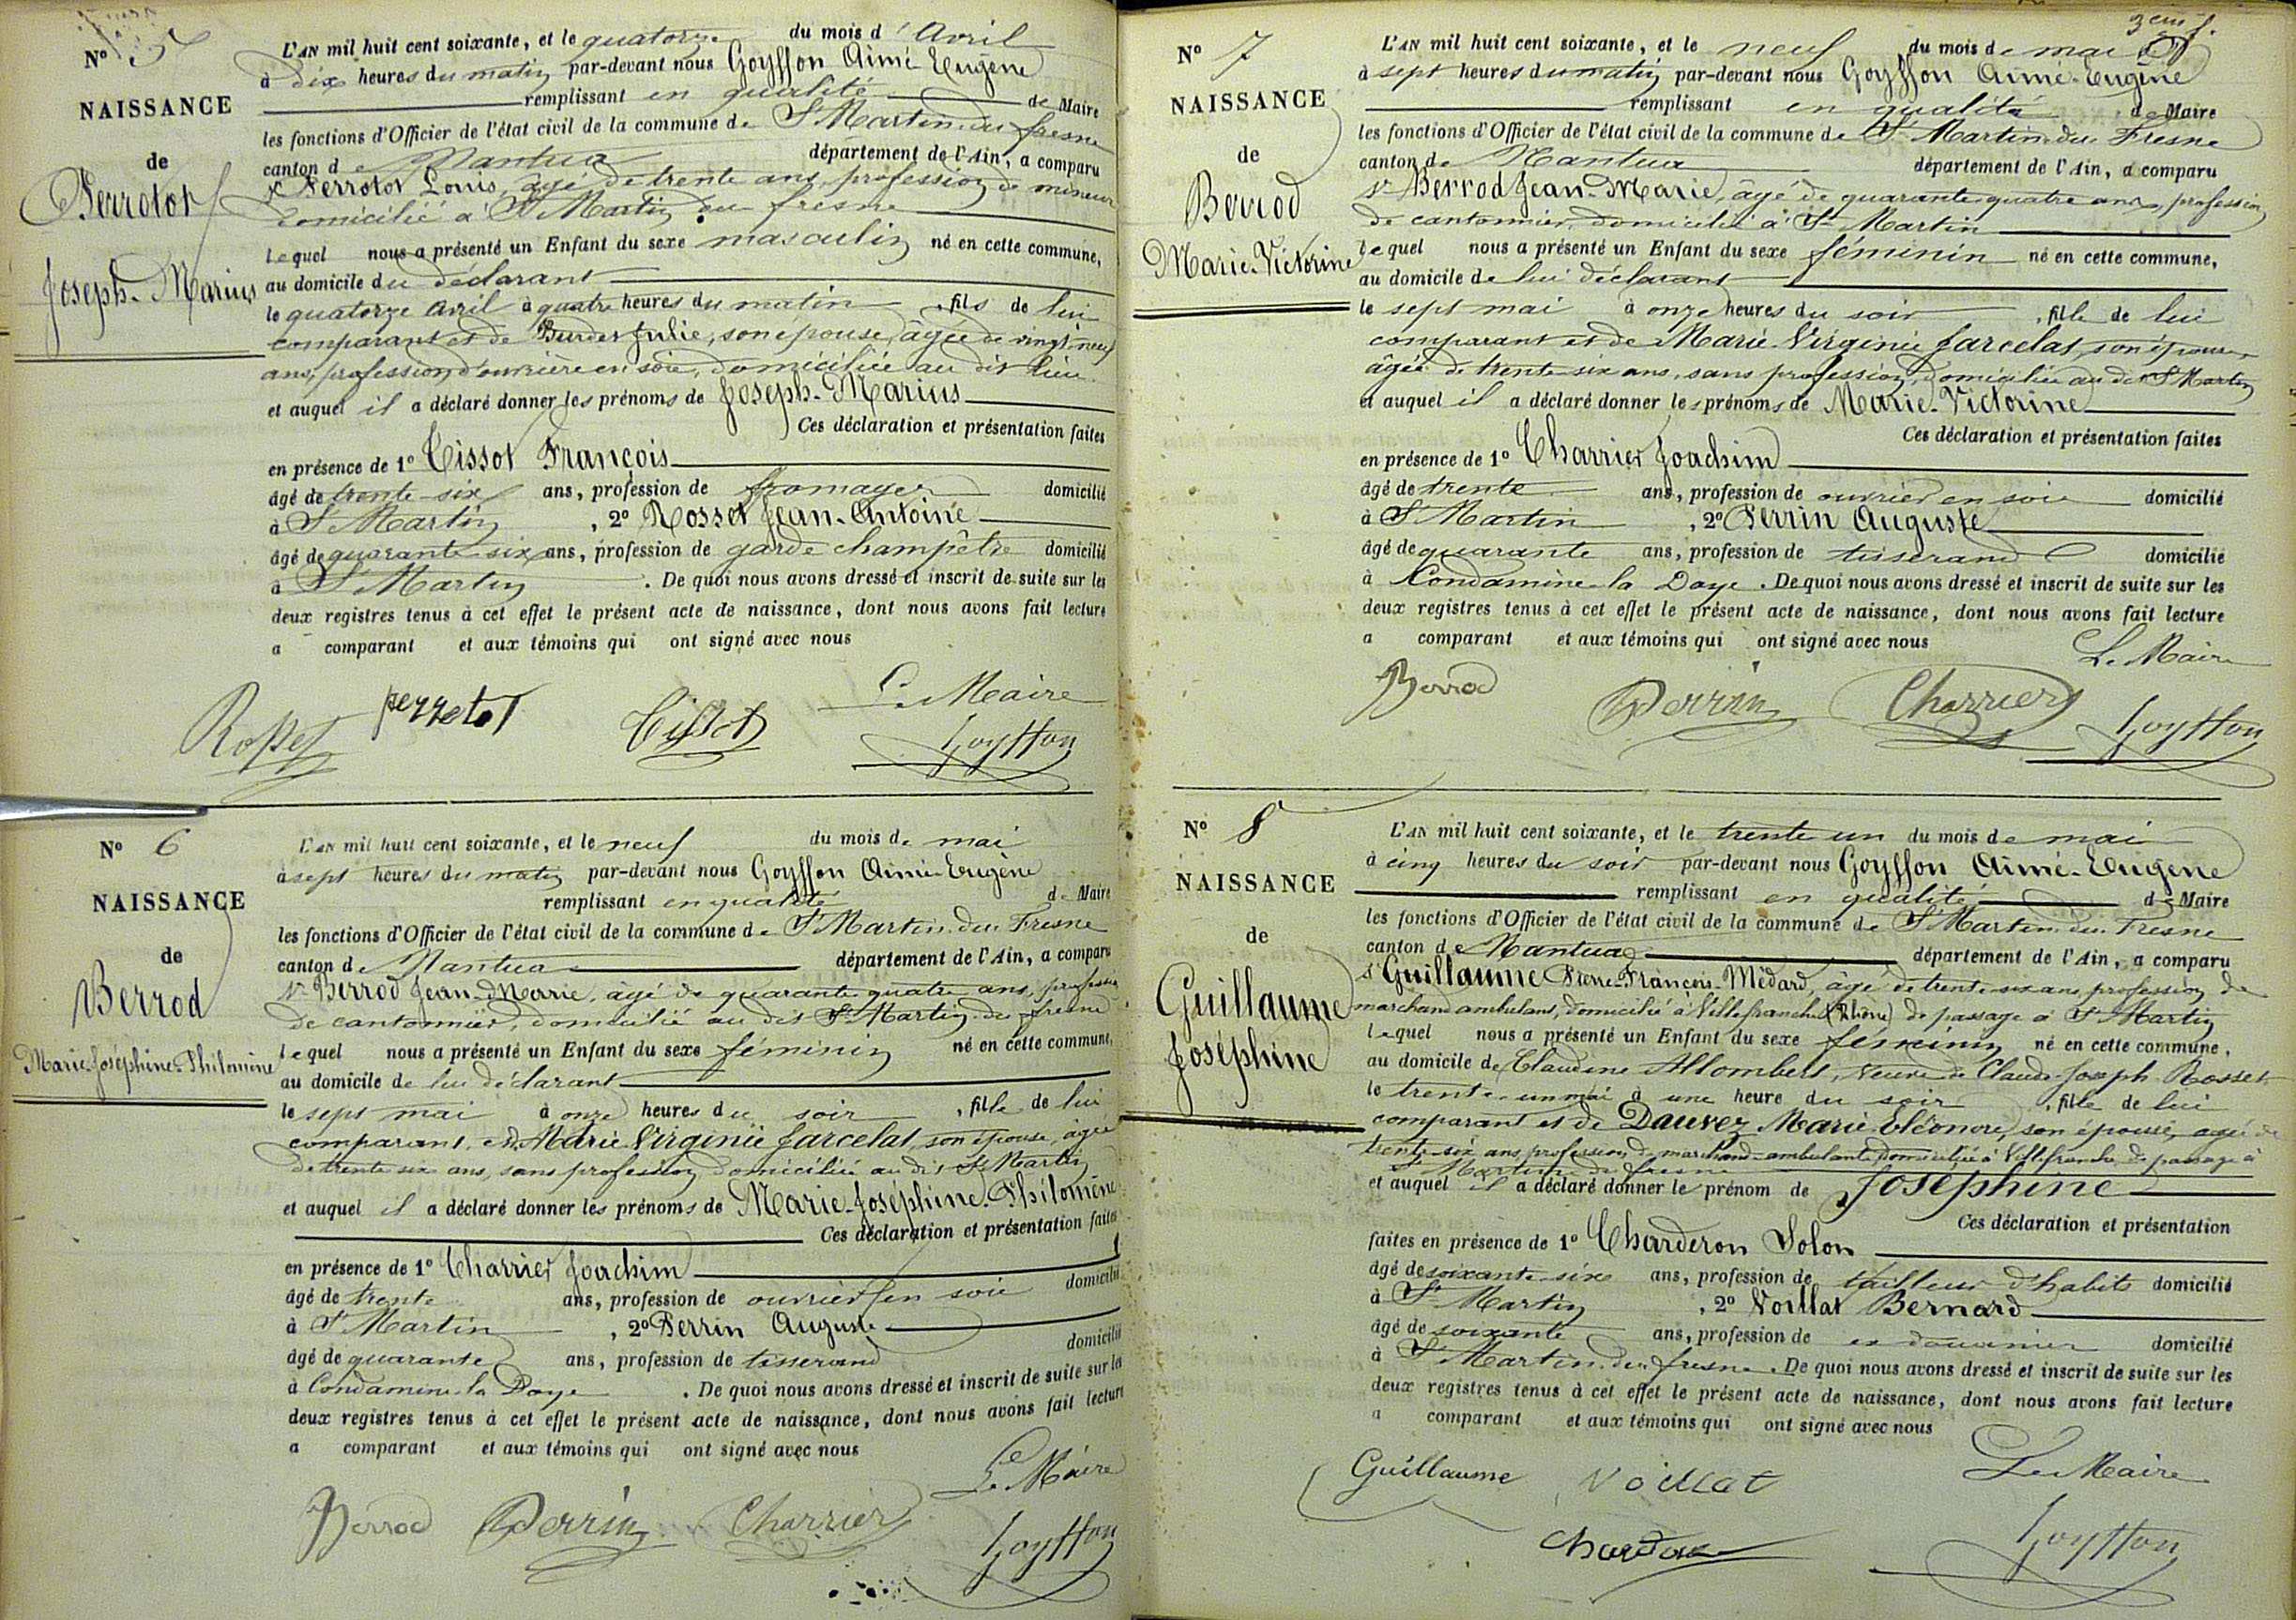 Nº 5
NAISSANCE
de
Perrotot
Joseph-Marius
L'AN mil huit cent soixante, et le quatorze du mois d'Avril
à dix heures du matin par-devant nous Goyffon Aimé Eugène
remplissant en qualité de Maire
les fonctions d'Officier de l'état civil de la commune de St Martin-du-fresne
canton de Nantua département de l'Ain, a comparu
Sr Perrotot Louis, âgé de trente ans, profession de mineur
domicilié à St Martin du fresne
lequel nous a présenté un Enfant du sexe masculin né en cette commune,
au domicile du déclarant
le quatorze avril à quatre heures du matin, fils de lui
comparant et de Burdet Julie, son épouse, âgée de vingt neuf
ans, profession d'ouvrière en soie, domiciliée au dit lieu.
et auquel il a déclaré donner les prénoms de Joseph-Marius
Ces déclaration et présentation faites
en présence de 1º Tissot François
âgé de trente-six ans, profession de fromager domicilié
à St Martin, 2º Rosset Jean-Antoine
âgé de quarante six ans, profession de garde champêtre domicilié
à St Martin. De quoi nous avons dressé et inscrit de suite sur les
deux registres tenus à cet effet le présent acte de naissance, dont nous avons fait lecture
a comparant et aux témoins qui ont signé avec nous
Le Maire
Rosset perrotot Tissot Goyffon
Nº 6
NAISSANCE
de
Berrod
Marie-Joséphine-Philomène
L'AN mil huit cent soixante, et le neuf du mois de mai
à sept heures du matin par-devant nous Goyffon Aimé-Eugène
remplissant en qualité de Maire
les fonctions d'Officier de l'état civil de la commune de St Martin-du-Fresne
canton de Nantua département de l'Ain, a comparu
Sr Berrod Jean-Marie, âgé de quarante-quatre ans, profession
de cantonnier, domicilié au dit St Martin-du-fresne
lequel nous a présenté un Enfant du sexe féminin né en cette commune,
au domicile de lui déclarant
le sept mai à onze heures du soir, fille de lui
comparant et de Marie Virginie Jarcelat, son épouse, âgée
de trente six ans, sans profession, domiciliée au dit St Martin
et auquel il a déclaré donner les prénoms de Marie-Joséphine-Philomène
Ces déclaration et présentation faites
en présence de 1º Charrier Joachim
âgé de trente ans, profession de ouvrier en soie domicilié
à St Martin, 2º Perrin Auguste
âgé de quarante ans, profession de tisserand domicilié
à Condamine-la Doye. De quoi nous avons dressé et inscrit de suite sur les
deux registres tenus à cet effet le présent acte de naissance, dont nous avons fait lecture
a comparant et aux témoins qui ont signé avec nous
Le Maire
Berrod Perrin Charrier Goyffon
Nº 7
NAISSANCE
de
Berrod
Marie-Victorine
3eme f.
L'AN mil huit cent soixante, et le neuf du mois de mai
à sept heures du matin par-devant nous Goyffon Aimé-Eugène
remplissant en qualité de Maire
les fonctions d'Officier de l'état civil de la commune de St Martin-du-Fresne
canton de Nantua département de l'Ain, a comparu
Sr Berrod Jean-Marie, âgé de quarante quatre ans, profession
de cantonnier, domicilié à St Martin
lequel nous a présenté un Enfant du sexe féminin né en cette commune,
au domicile de lui déclarant
le sept mai à onze heures du soir, fille de lui
comparant et de Marie Virginie Jarcelat, son épouse,
âgée de trente six ans, sans profession, domiciliée au dit St Martin
et auquel il a déclaré donner les prénoms de Marie-Victorine
Ces déclaration et présentation faites
en présence de 1º Charrier Joachim
âgé de trente ans, profession de ouvrier en soie domicilié
à St Martin, 2º Perrin Auguste
âgé de quarante ans, profession de tisserand domicilié
à Condamine-la Doye. De quoi nous avons dressé et inscrit de suite sur les
deux registres tenus à cet effet le présent acte de naissance, dont nous avons fait lecture
a comparant et aux témoins qui ont signé avec nous
Le Maire
Berrod Perrin Charrier Goyffon
Nº 8
NAISSANCE
de
Guillaume
Joséphine
L'AN mil huit cent soixante, et le trente un du mois de mai
à cinq heures du soir par-devant nous Goyffon Aimé-Eugène
remplissant en qualité de Maire
les fonctions d'Officier de l'état civil de la commune de St Martin-du-Fresne
canton de Nantua département de l'Ain, a comparu
Sr Guillaume Pierre-François-Médard, âgé de trente-six ans, profession de
marchand ambulant, domicilié à Villefranche (Rhône) de passage à St Martin
lequel nous a présenté un Enfant du sexe féminin né en cette commune,
au domicile de Claudine Allombert, veuve de Claude-Joseph Rosset
le trente-un mai à une heure du soir, fille de lui
comparant et de Dauvez Marie Eléonore, son épouse, âgée de
trente-six ans, profession de marchande-ambulante, domiciliée à Villefranche, de passage à
St Martin du fresne
et auquel il a déclaré donner le prénom de Joséphine
Ces déclaration et présentation
faites en présence de 1º Charderon Solon
âgé de soixante-six ans, profession de tailleur d'habits domicilié
à St Martin, 2º Voillat Bernard
âgé de soixante ans, profession de ex douanier domicilié
à St Martin-du-fresne. De quoi nous avons dressé et inscrit de suite sur les
deux registres tenus à cet effet le présent acte de naissance, dont nous avons fait lecture
a comparant et aux témoins qui ont signé avec nous
Guillaume Voillat Le Maire
Goyffon